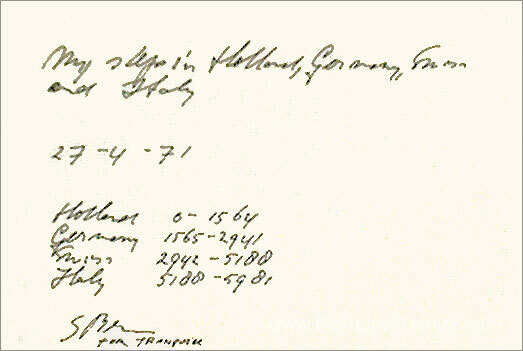 My steps in Holland, Germany, Swiss
and Italy
27-4-71
Holland 0-1564
Germany 1565-2941
Swiss 2942-5188
Italy 5188-5981
for